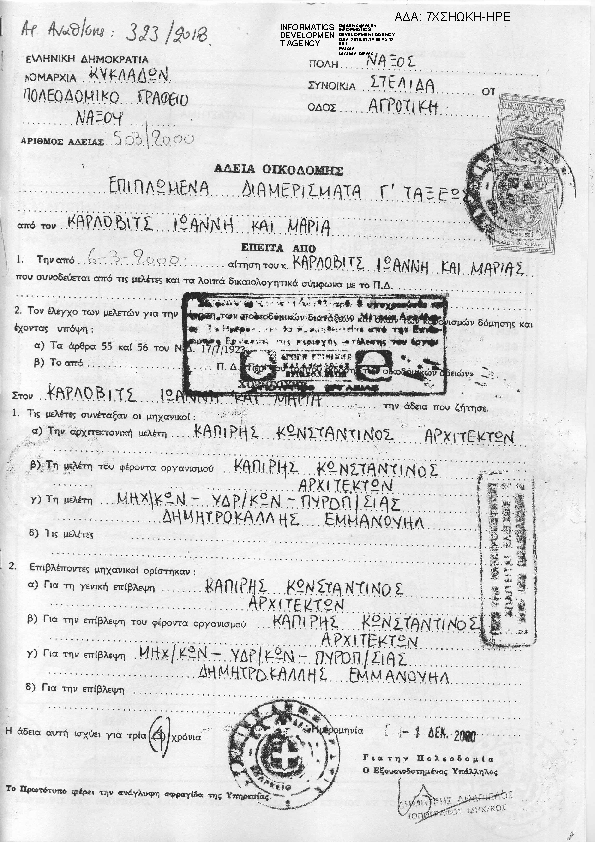 ΑΔΑ: 7ΧΣΗΩΚΗ-ΗΡΕ
INFORMATICS
DEVELOPMEN
T AGENCY
Αρ. Αναθ/σης: 323/2018
ΕΛΛΗΝΙΚΗ ΔΗΜΟΚΡΑΤΙΑ
ΝΟΜΑΡΧΙΑ ΚΥΚΛΑΔΩΝ
ΠΟΛΕΟΔΟΜΙΚΟ ΓΡΑΦΕΙΟ
ΝΑΞΟΥ
ΑΡΙΘΜΟΣ ΑΔΕΙΑΣ 503/2000
ΠΟΛΗ ΝΑΞΟΣ
ΣΥΝΟΙΚΙΑ ΣΤΕΛΙΔΑ ΟΤ
ΟΔΟΣ ΑΓΡΟΤΙΚΗ
ΑΔΕΙΑ ΟΙΚΟΔΟΜΗΣ
ΕΠΙΠΛΩΜΕΝΑ ΔΙΑΜΕΡΙΣΜΑΤΑ Γ' ΤΑΞΕΩΣ
από τον ΚΑΡΛΟΒΙΤΣ ΙΩΑΝΝΗ ΚΑΙ ΜΑΡΙΑ
ΕΠΕΙΤΑ ΑΠΟ
1. Την από 6-3-2000 αίτηση του κ. ΚΑΡΛΟΒΙΤΣ ΙΩΑΝΝΗ ΚΑΙ ΜΑΡΙΑΣ
που συνοδεύεται από τις μελέτες και τα λοιπά δικαιολογητικά σύμφωνα με το Π.Δ.
2. Τον έλεγχο των μελετών για την των πολεοδομικών διατάξεων δόμησης και
έχοντας υπόψη :
α) Τα άρθρα 55 και 56 του Ν.Δ. 17/7/1923
β) Το από Π.Δ.
Στον ΚΑΡΛΟΒΙΤΣ ΙΩΑΝΝΗ ΚΑΙ ΜΑΡΙΑ την άδεια που ζήτησε.
1. Τις μελέτες συνέταξαν οι μηχανικοί :
α) Την αρχιτεκτονική μελέτη ΚΑΠΙΡΗΣ ΚΩΝΣΤΑΝΤΙΝΟΣ ΑΡΧΙΤΕΚΤΩΝ
β) Τη μελέτη του φέροντα οργανισμού ΚΑΠΙΡΗΣ ΚΩΝΣΤΑΝΤΙΝΟΣ
ΑΡΧΙΤΕΚΤΩΝ
γ) Τη μελέτη ΜΗΧ/ΚΩΝ - ΥΔΡ/ΚΩΝ - ΠΥΡΟΠ/ΣΙΑΣ
ΔΗΜΗΤΡΟΚΑΛΛΗΣ ΕΜΜΑΝΟΥΗΛ
δ) Τις μελέτες
2. Επιβλέποντες μηχανικοί ορίστηκαν :
α) Για τη γενική επίβλεψη ΚΑΠΙΡΗΣ ΚΩΝΣΤΑΝΤΙΝΟΣ
ΑΡΧΙΤΕΚΤΩΝ
β) Για την επίβλεψη του φέροντα οργανισμού ΚΑΠΙΡΗΣ ΚΩΝΣΤΑΝΤΙΝΟΣ
ΑΡΧΙΤΕΚΤΩΝ
γ) Για την επίβλεψη ΜΗΧ/ΚΩΝ - ΥΔΡ/ΚΩΝ - ΠΥΡΟΠ/ΣΙΑΣ
ΔΗΜΗΤΡΟΚΑΛΛΗΣ ΕΜΜΑΝΟΥΗΛ
δ) Για την επίβλεψη
Η άδεια αυτή ισχύει για τρία (4) χρόνια
Ημερομηνία - 1 ΔΕΚ. 2000
Για την Πολεοδομία
Ο Εξουσιοδοτημένος Υπάλληλος
Το Πρωτότυπο φέρει την ανάγλυφη σφραγίδα της Υπηρεσίας.